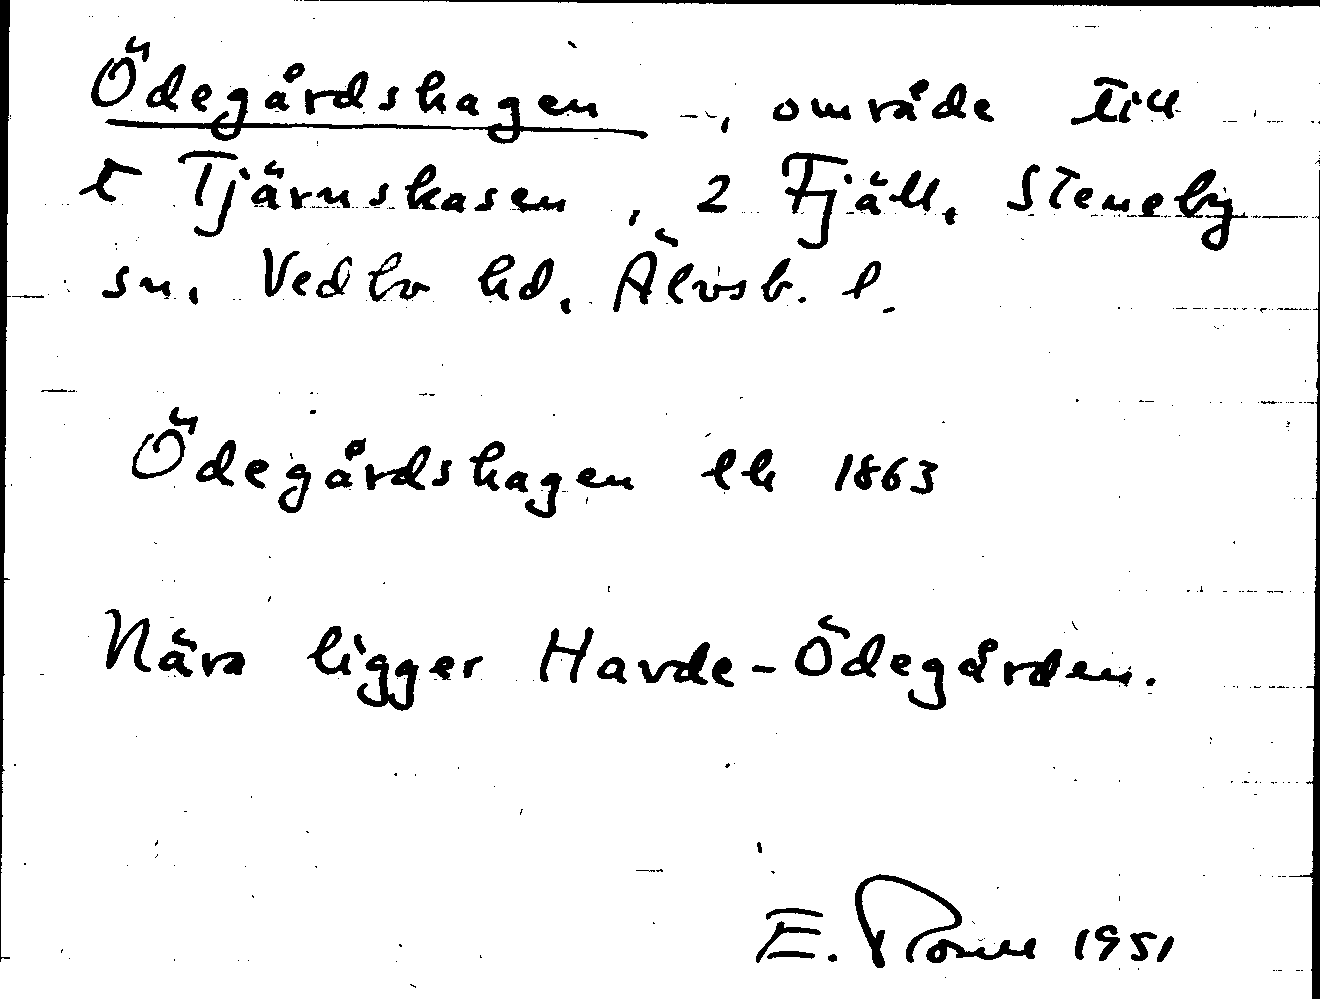 Ödegårdshagen, område till
t Tjärnskasen, 2 Fjäll, Steneby
sn, Vedbo hd, Älvsb. l.
Ödegårdshagen lh 1863
Nära ligger Havde-Ödegården.
E. 1951